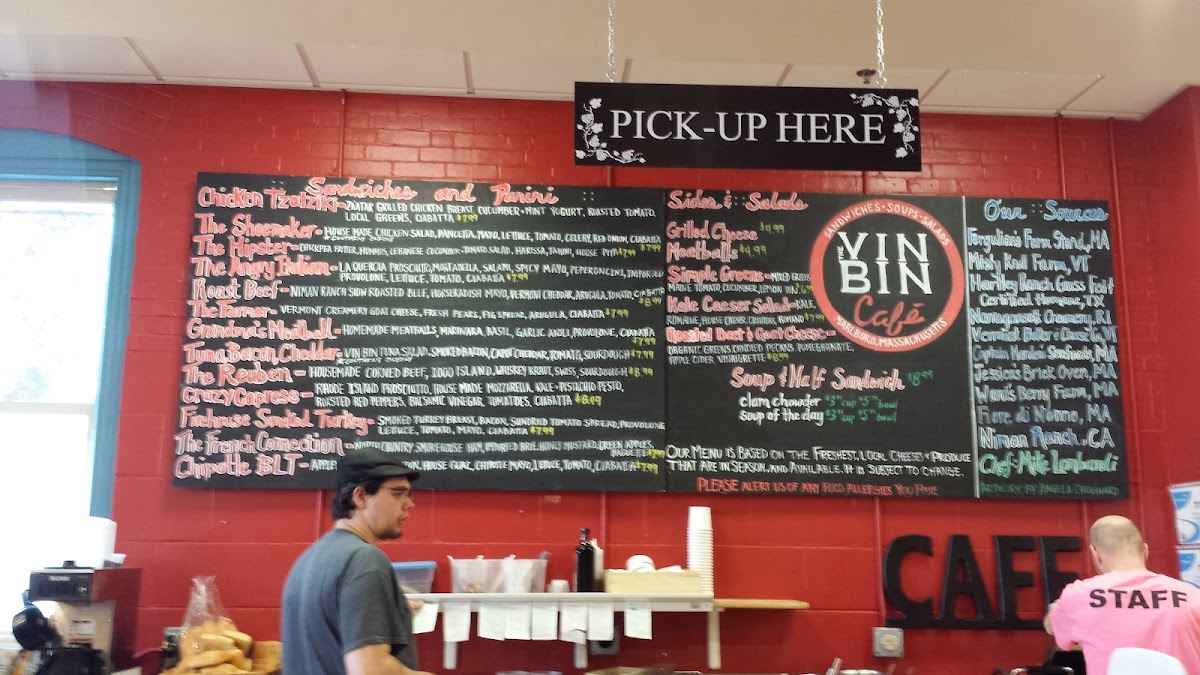 PICK-UP HERE
Sandwiches and Panini
Chicken Tzatziki - ZAATAR GRILLED CHICKEN BREAST CUCUMBER-MINT YOGURT, ROASTED TOMATO,
LOCAL GREENS, CIABATTA $7.99
The Shoemaker - HOUSE MADE CHICKEN SALAD, PANCETTA, MAYO, LETTUCE, TOMATO, CELERY, RED ONION, CIABATTA
$7.99
The Hipster - CHICKPEA FRITTER, HUMMUS, LEBANESE CUCUMBER-TOMATO SALAD, HARISSA, TAHINI, HOUSE PITA $7.99
The Angry Italian - LA QUERCIA PROSCIUTTO, MORTADELLA, SALAMI, SPICY MAYO, PEPERONCINI, IMPORTED
PROVOLONE, LETTUCE, TOMATO, CIABATTA $7.99
Roast Beef - NIMAN RANCH SLOW ROASTED BEEF, HORSERADISH MAYO, VERMONT CHEDDAR, ARUGULA, TOMATO, CIABATTA
$8.99
The Farmer - VERMONT CREAMERY GOAT CHEESE, FRESH PEARS, FIG SPREAD, ARUGULA, CIABATTA $7.99
Grandma's Meatball - HOMEMADE MEATBALLS, MARINARA, BASIL, GARLIC AIOLI, PROVOLONE, CIABATTA
$7.99
Tuna, Bacon, Cheddar - VIN BIN TUNA SALAD, SMOKED BACON, CABOT CHEDDAR, TOMATO, SOURDOUGH $7.99
The Reuben - HOUSEMADE CORNED BEEF, 1000 ISLAND, WHISKEY KRAUT, SWISS, SOURDOUGH $8.99
Crazy Caprese - RHODE ISLAND PROSCIUTTO, HOUSE MADE MOZZARELLA, KALE-PISTACHIO PESTO,
ROASTED RED PEPPERS, BALSAMIC VINEGAR, TOMATOES, CIABATTA $8.99
Firehouse Smoked Turkey - SMOKED TURKEY BREAST, BACON, SUNDRIED TOMATO SPREAD, PROVOLONE
LETTUCE, TOMATO, MAYO, CIABATTA $7.99
The French Connection - NORTH COUNTRY SMOKEHOUSE HAM, IMPORTED BRIE, HONEY MUSTARD, GREEN APPLES,
BAGUETTE $7.99
Chipotle BLT - APPLE ON, HOUSE GUAC, CHIPOTLE MAYO, LETTUCE, TOMATO, CIABATTA $7.99
Sides & Salads
Grilled Cheese $4.99
Meatballs $4.99
Simple Greens - MIXED GREENS
MAINE TOMATO, CUCUMBER, LEMON VIN.
Kale Caesar Salad - KALE,
ROMAINE, HOUSE CAESAR, CROUTONS, ROMANO $7.99
Roasted Beet & Goat Cheese -
ORGANIC GREENS, CANDIED PECANS, POMEGRANATE,
APPLE CIDER VINAIGRETTE $8.99
Soup & Half Sandwich $8.99
clam chowder $3" cup $5" bowl
soup of the day $3" cup $5" bowl
OUR MENU IS BASED ON THE FRESHEST, LOCAL CHEESES & PRODUCE
THAT ARE IN SEASON AND AVAILABLE. IT IS SUBJECT TO CHANGE.
PLEASE ALERT US OF ANY FOOD ALLERGIES YOU HAVE
SANDWICHES • SOUPS • SALADS
THE
VIN
BIN
Café
MARLBORO, MASSACHUSETTS
Our Sources
Ferguson's Farm Stand, MA
Misty Knoll Farm, VT
Hartley Ranch Grass Fed &
Certified Humane, TX
Narragansett Creamery, RI
Vermont Butter & Cheese Co, VT
Captain Marden's Seafoods, MA
Jessica's Brick Oven, MA
Ward's Berry Farm, MA
Fiore di Nonno, MA
Niman Ranch, CA
Chef: Mike Lombardi
ARTWORK BY ANGELA CHOUINARD
CAFE
STAFF